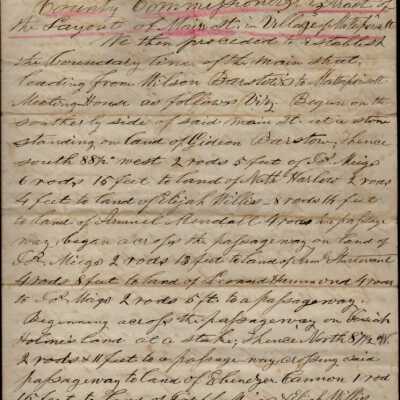 County Commissioners extract of
the Layout of Main St. in Village of Mattapoisett
We then proceeded to establish
the boundary line of the main street,
leading from Wilson Barstow's to Mattapoisett
Meeting House as follows Viz. Began on the
southerly side of said main st. at a stone
standing on land of Gideon Barstow, thence
south 88½° west 2 rods 5 feet of Jos. Meigs
6 rods 15 feet to land of Nath Harlow 2 rods
4 feet to land of Elijah Willis 8 rods 14 feet
to land of Samuel Kendall 4 rods passage
way, began across the passageway on land of
Jos. Meigs 2 rods 13 feet to land of Sturtevant
4 rods 8 feet to land of Leonard Hammond 4 rods
to Jos. Meigs 2 rods 5 ft to a passageway.
Beginning across the passageway on
Holmes land at a stake, thence North 87½ W.
2 rods & 11 feet to a passage way crossing said
passageway to land of Ebenezer Cannon 1 rod
15 feet to land of Meigs Elijah Willis